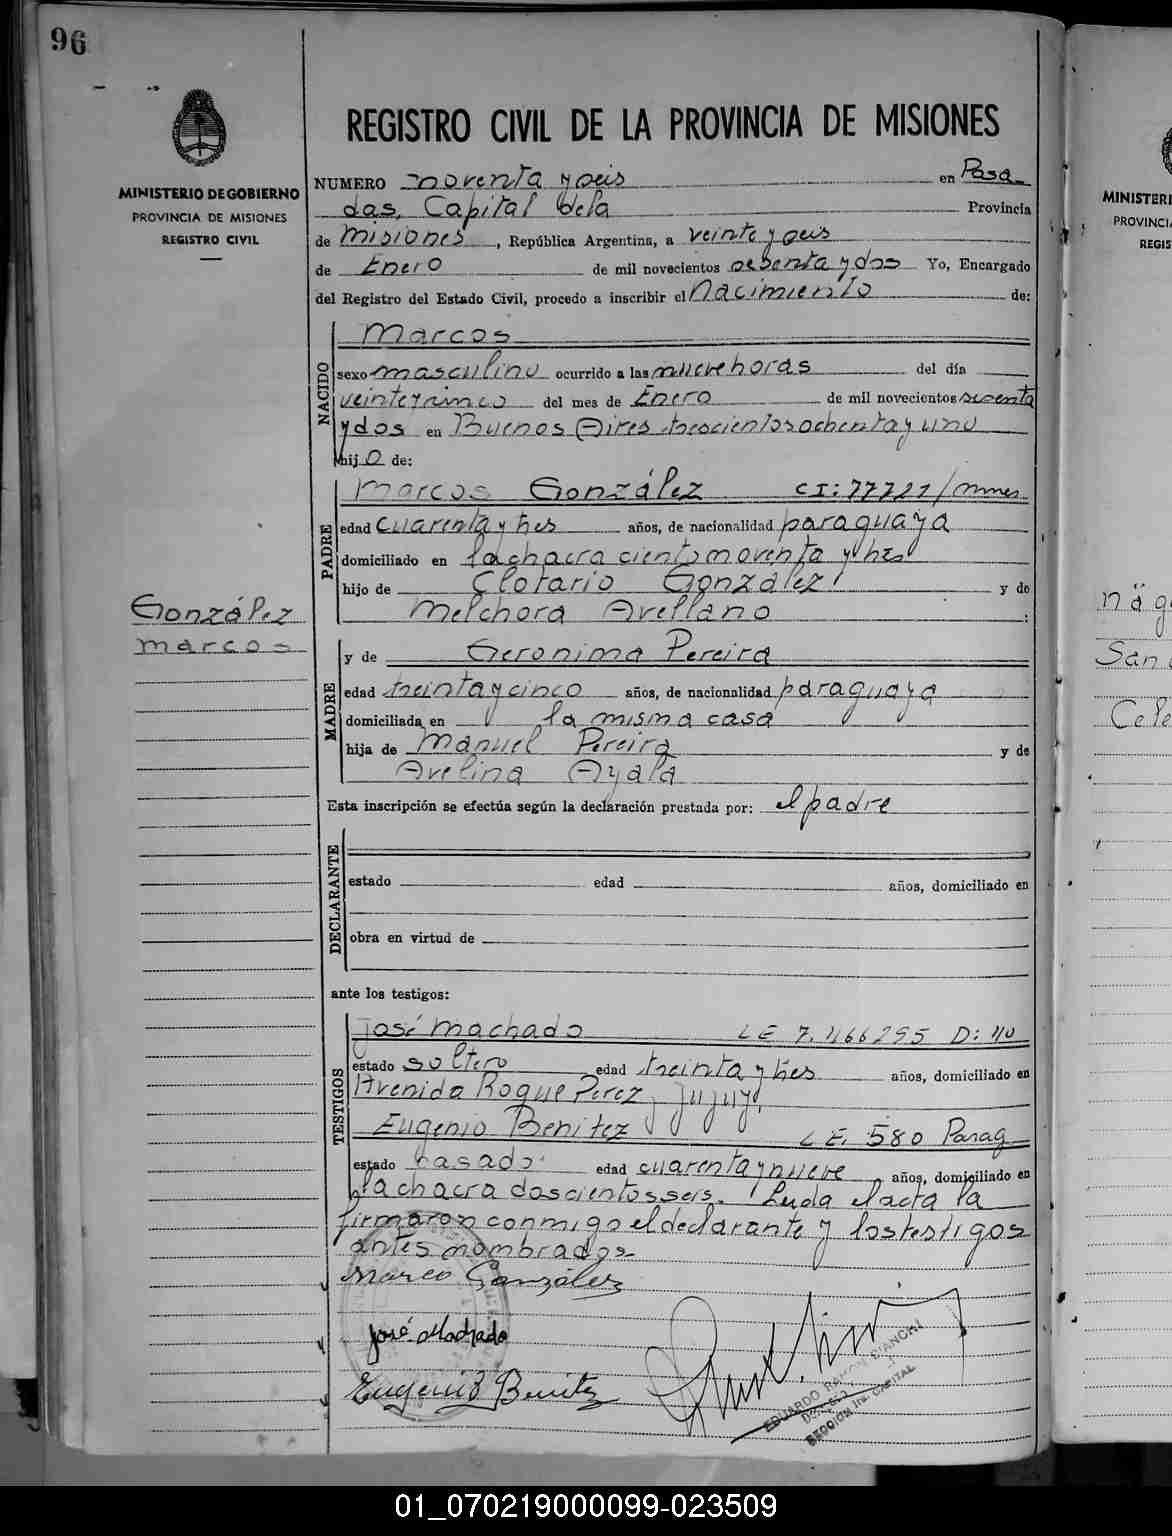 96
REGISTRO CIVIL DE LA PROVINCIA DE MISIONES
MINISTERIO DE GOBIERNO
PROVINCIA DE MISIONES
REGISTRO CIVIL
NUMERO noventa y seis en Posa-
das, Capital de la Provincia
de Misiones, República Argentina, a veinte y seis
de Enero de mil novecientos sesenta y dos Yo, Encargado
del Registro del Estado Civil, procedo a inscribir el Nacimiento de:
NACIDO
Marcos
sexo masculino ocurrido a las nueve horas del día
veinte y cinco del mes de Enero de mil novecientos sesenta
y dos en Buenos Aires trescientos ochenta y uno
hijo de:
PADRE
Marcos González CI: 77727/mnes
edad cuarenta y tres años, de nacionalidad paraguaya
domiciliado en la chacra ciento noventa y tres
hijo de Clotario González y de
Melchora Arellano :
González
Marcos
MADRE
y de Geronima Pereira
edad treinta y cinco años, de nacionalidad paraguaya
domiciliada en la misma casa
hija de Manuel Pereira y de
Avelina Ayala
Esta inscripción se efectúa según la declaración prestada por: el padre
DECLARANTE
estado edad años, domiciliado en
obra en virtud de
ante los testigos:
TESTIGOS
José Machado LE 7.466295 D: 40
estado soltero edad treinta y tres años, domiciliado en
Avenida Roque Perez y Jujuy.
Eugenio Benitez L E. 580 Parag
estado casado edad cuarenta y nueve años, domiciliado en
la chacra doscientos seis. Leida el acta la
firmaron conmigo el declarante y los testigos
antes nombrados
Marco González
José Machado
Eugenio Benitez
EDUARDO RAMON BIANCHI
SECCION 1ra. CAPITAL
MINISTERI
PROVINCI
REGIS
San
Cele
01_070219000099-023509